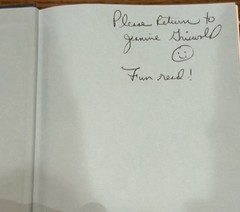 Please Return to
Jeanine Griswold
Fun read!